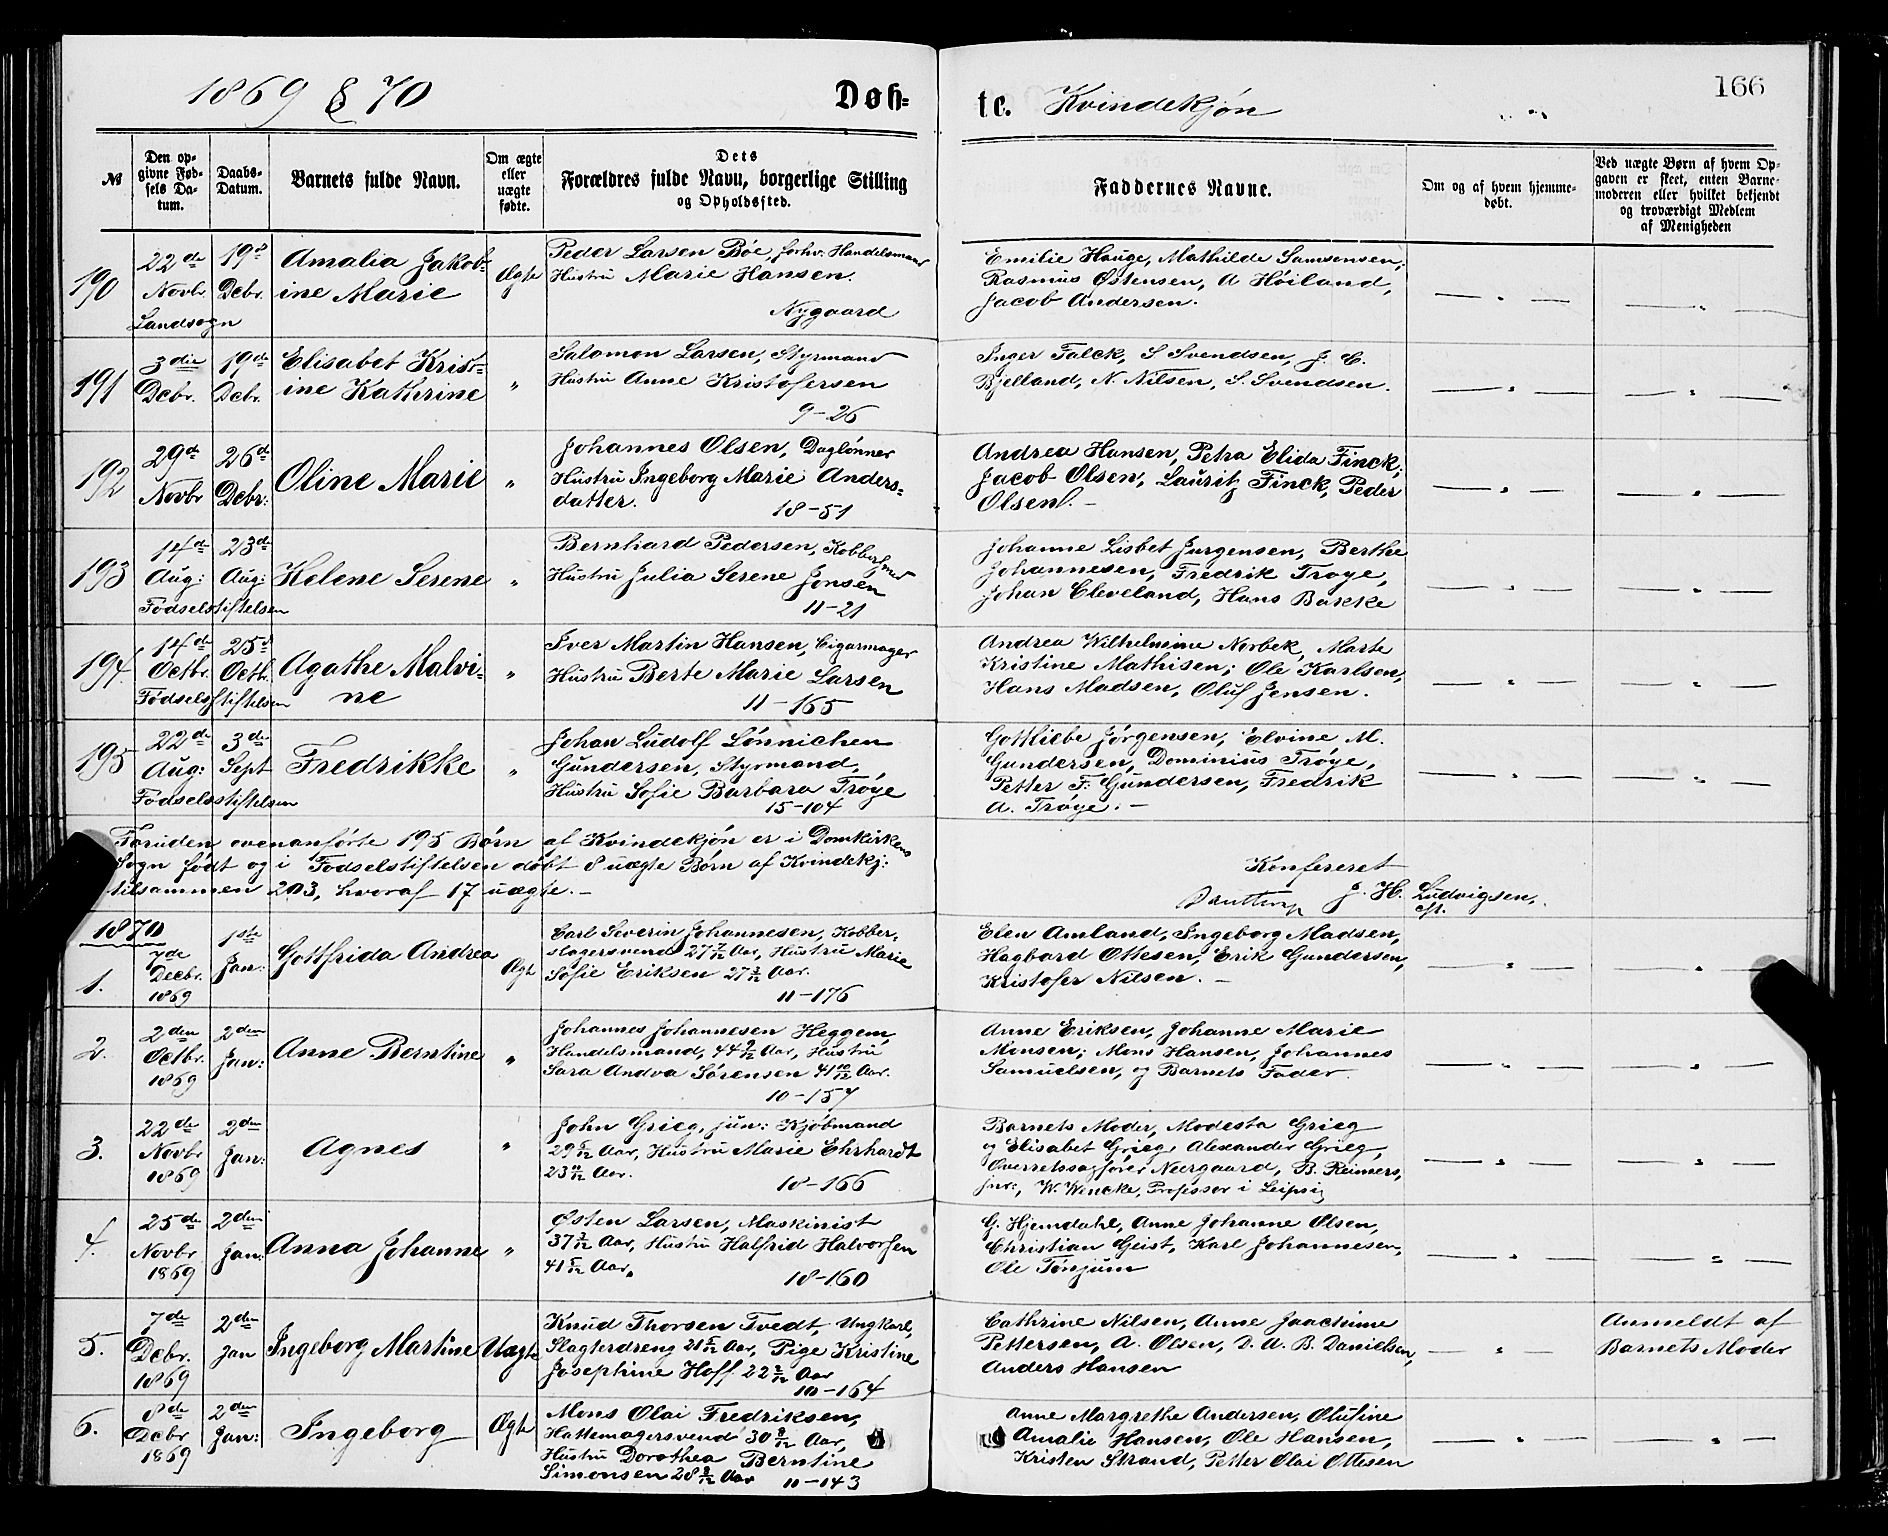 1869 & 70
Døb=
te. Kvindekjøn
166
№
Den op=
givne Fød=
sels Da=
tum.
Daabs=
Datum.
Barnets fulde Navn.
Om ægte
eller
uægte
fødte.
Dets
Forældres fulde Navn, borgerlige Stilling
og Opholdssted.
Faddernes Navne.
Om og af hvem hjemme=
døbt.
Ved uægte Børn af hvem Op=
gaven er skeet, enten Barne=
moderen eller hvilket bekjendt
og troværdigt Medlem
af Menigheden
190
22de
Novbr
Landsogn
19d
Debr.
Amalia Jakob=
ine Marie
Ægte
Peder Larsen Bøe, forhv. Handelsmand
Hustru Marie Hansen.
Nygaard
Emilie Hauge, Mathilde Samsonsen;
Rasmus Østensen, A Høiland,
Jacob Andersen.
191
3die
Debr.
19de
Debr.
Elisabet Krist=
ine Kathrine
"
Salomon Larsen, Styrmand
Hustru Anne Kristofersen
9-26
Inger Falck, S Svendsen, J. C.
Bjelland, N. Nilsen, S. Svendsen.
192
29d
Novbr
26d
Debr:
Oline Marie
"
Johannes Olsen, Daglønner
Hustru Ingeborg Marie Anders=
datter.
18-51
Andrea Hansen, Petra Elida Finck;
Jacob Olsen, Lauritz Finck, Peder
Olsen.
193
14de
Aug:
Fødselsstiftelsen
23de
Aug:
Helene Serene
"
Bernhard Pedersen, Kobbersmed
Hustru Julia Serene Jonsen
11-21
Johanne Lisbet Jurgensen, Berthe
Johannesen, Fredrik Troye,
Johan Cleveland, Hans Bakke
194
14de
Octbr.
Fødselsstiftelsen
25d
Octb.
Agathe Malvi=
ne
"
Iver Martin Hansen, Cigarmager
Hustru Berte Marie Larsen
11-165
Andrea Wilhelmine Norbek, Marte
Kristine Mathisen; Ole Karlsen,
Hans Madsen, Oluf Jensen.
195
22de
Aug:
Fødselsstiftelsen
3de
Sept
Fredrikke
"
Johan Ludolf Lønnichen
Gundersen, Styrmand,
Hustru Sofie Barbara Trøye
15-104
Gottliebe Jørgensen, Elvine M.
Gundersen, Dominius Trøye,
Petter F. Gundersen, Fredrik
A. Trøye.
Foruden ovenanførte 195 Børn af Kvindekjøn er i Domkirkens
Sogn født og i Fødselsstiftelsen døbt 8 uægte Børn af Kvindekj:
tilsammen 203, hvoraf 17 uægte.
Konfereret
J. H. Ludvigsen,
1870
1.
7de
Decbr.
1869
1ste
Jan:
Gottfrida Andrea
Ægt
Carl Severin Johannesen, Kobber,
slagersvend 27 7/12 Aar, Hustru Marie
Sofie Eriksen 27 3/12 Aar.
11-176
Elen Amland, Ingeborg Madsen,
Hagbard Ottesen, Erik Gundersen,
Kristofer Nilsen.
2.
2den
Octbr.
1869
2den
Jan:
Anne Berntine
"
Johannes Johannesen Heggem,
Handelsmand, 44 9/12 Aar, Hustru
Sara Andva Sørensen 41 10/12 Aar.
10-157
Anne Eriksen, Johanne Marie
Monsen; Mons Hansen, Johannes
Samuelsen, og Barnets Fader.
3.
22de
Novbr
1869
2den
Jan:
Agnes
"
John Grieg, jun: Kjøbmand
29 6/12 Aar, Hustru Marie Ehrhardt
23 Aar.
18-166
Barnets Moder, Modesta Grieg
og Elisabet Grieg, Alexander Grieg,
Overretssagfører Neergaard, B. Reimers,
jnr:, W. Wencke, Professor i Leipsig
4.
25de
Novbr
1869
2den
Jan:
Anna Johanne
"
Østen Larsen, Maskinist
37 3/12 Aar, Hustru Halfrid Halvorsen
41 6/12 Aar,
18-160
G. Hjemdahl, Anne Johanne Olsen,
Christian Geist, Karl Johannesen,
Ole Tønjum
5.
7de
Debr.
1869
2den
Jan
Ingeborg Martine
Uægte
Knud Thorsen Tvedt, Ungkarl,
Slagterdreng 21 5/12 Aar, Pige Kristine
Josephine Hoff 22 2/12 Aar
10-164
Cathrine Nilsen, Anne Joachime
Pettersen, A. Olsen, D. A. B. Danielsen,
Anders Hansen
Anmeldt af
Barnets Moder
6.
8de
Debr
1869
2den
Jan:
Ingeborg
Ægte
Mons Olai Fredriksen,
Hattemagersvend 30 8/12 Aar,
Hustru Dorothea Berntine
Simonsen 28 9/12 Aar 11-143
Anne Margrethe Andersen, Olufine
Amalie Hansen, Ole Hansen,
Kristen Strand, Petter Olai Ottesen